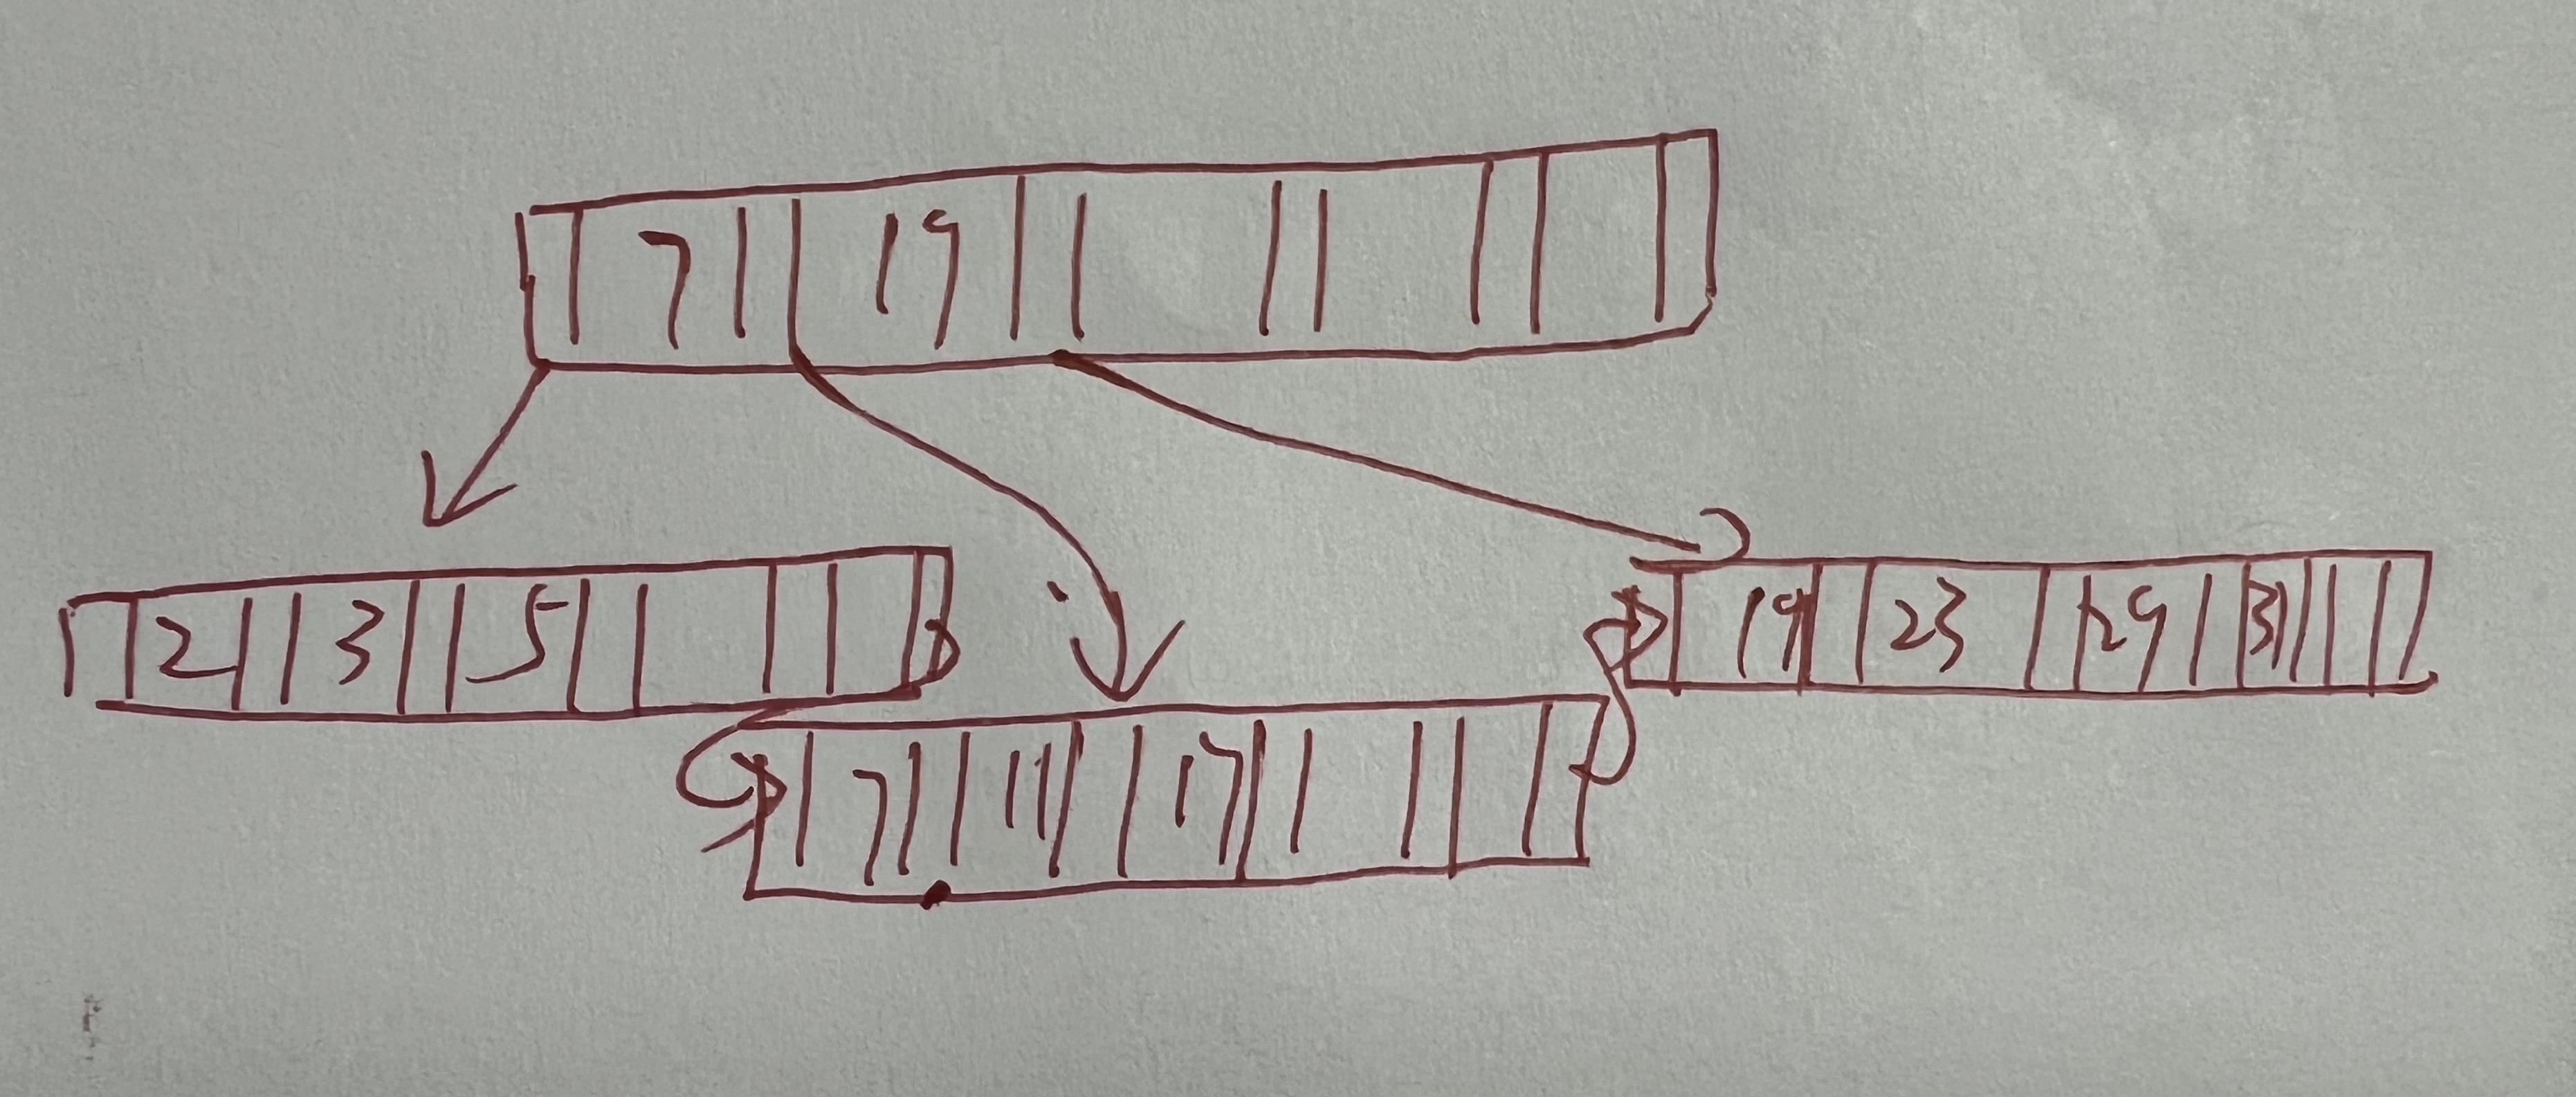 7 19
2 3 5
7 11 17
19 23 29 31